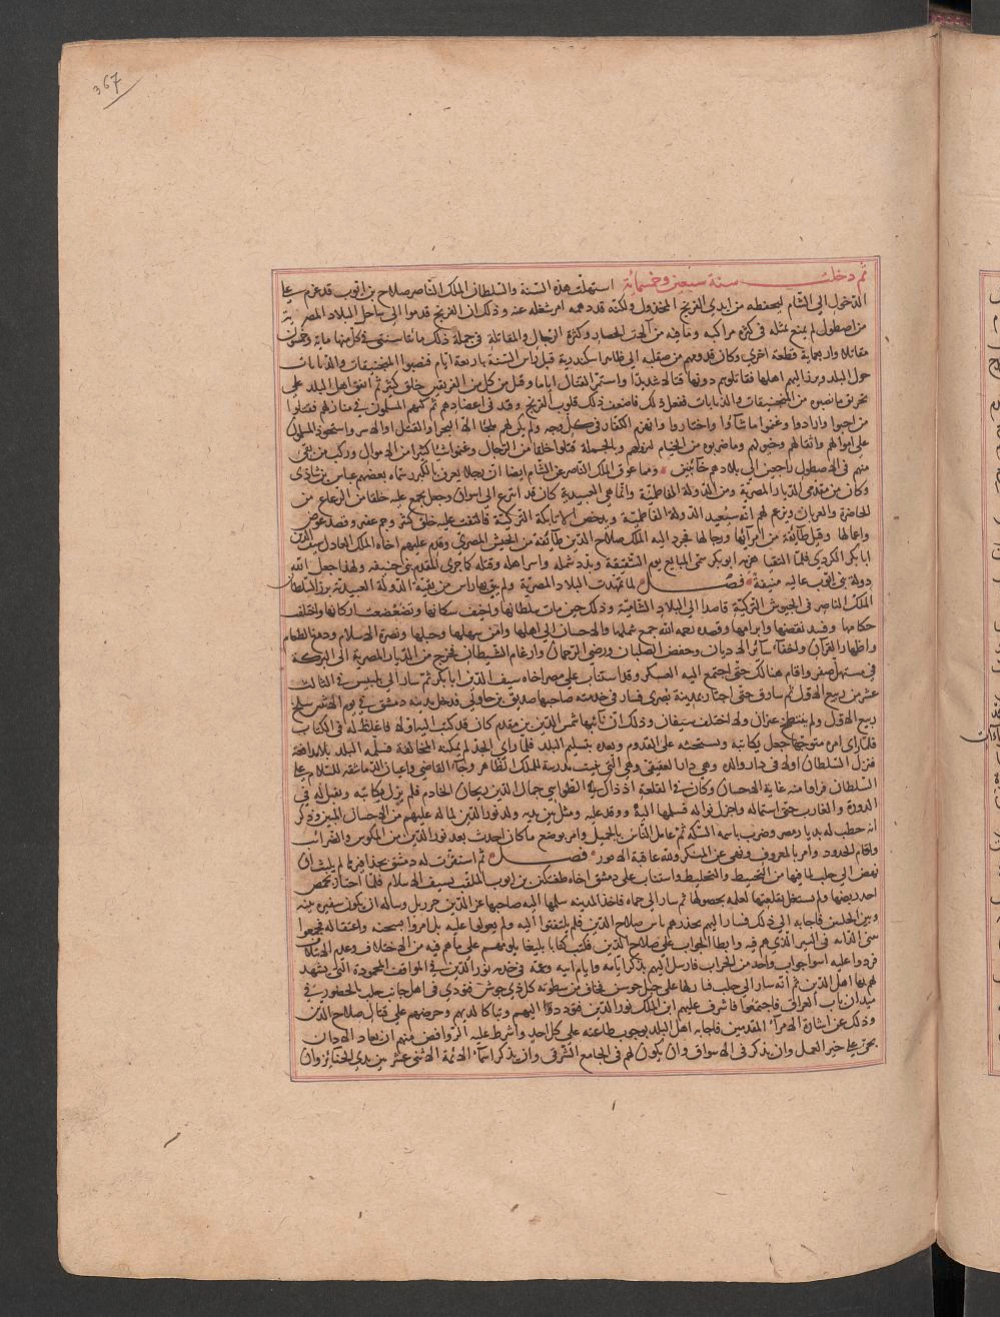 367
ثم دخلت سنة سبعين وخمسمائة استهلت هذه السنة والسلطان الملك الناصر صلاح بن ايوب قد عزم على
الدخول الى الشام ليحفظه من ايدي الفرنج المخذول ولكنه قد دهمه امر شغله عنه وذلك ان الفرنج قدموا الى ساحل البلاد المصرية
من اصطول لم يسمع بمثله في كثرة مراكبه وما فيه من آلات الحصار وكثرة الرجال والمقاتلة في جملة ذلك مائتا سيني في كل منها ماية وخمسون
مقاتلا واربعماية قطعة اخرى وكان قدومهم من صقلية الى ظاهر اسكندرية قبل راس السنة باربعة ايام فنصبوا المنجنيقات والدبابات
حول البلد وبرز اليهم اهلها فقاتلوهم دونها قتالا شديدا واستمر القتال اياما وقتل من كل من الفريقين خلق كثير ثم اتفق اهل البلد على
تحريق ما نصبوه من المنجنيقات والدبابات ففعلوا ذلك فاضعف ذلك قلوب الفرنج وفت في اعضادهم ثم كبسهم المسلمون في منازلهم فقتلوا
من احبوا وارادوا وغنموا ما شاؤا واختاروا وانهزم الكفار في كل وجه ولم يكن لهم ملجا الا البحر او القتل او الاسر واستحوذ المسلمون
على اموالهم واثقالهم وخيولهم وما ضربوه من الخيام لنزولهم وبالجملة قتلوا خلقا من الرجال وغنموا شيا كثيرا من الاموال وركب من بقي
منهم في الاصطول راجعين الى بلادهم خائبين ومما عوق الملك الناصر عن الشام ايضا ان رجلا يعرف بالكنز سماه بعضهم عباس بن شادى
وكان من مقدمي الديار المصرية ومن الدولة الفاطمية وانما هي العبيدية كان قد انتزع الى اسوان وجعل يجمع عليه خلقا من الرعاع من
الحاضرة والعربان ويزعم لهم انه سيعيد الدولة الفاطمية ويدحض الاتابكة التركية فالتفت عليه خلق كثير وجم غفير وقصد قوص
واعمالها وقتل طائفة من امرآئها ورجالها فجرد اليه الملك صلاح الدين طائفة من الجيش المصري وقدم عليهم اخاه الملك العادل سيف الدين
ابابكر الكردي فلما التقيا هزمه ابو بكر وبدد شمله واسر اهله وقتله كما جرى للمقدم بني حنيفه ولهذا جعل الله
دولة بني ايوب عالية منيفة فصـــل لما تمهدت البلاد المصرية ولم يبق بها راس من بقية الدولة العبيدية برز السلطان
الملك الناصر في الجيوش التركية قاصدا الى البلاد الشامية وذلك حين مات سلطانها واخيف سكانها وتضعضعت اركانها واختلف
حكامها وفسد نقضها وابرامها وقصده رحمه الله جمع شملها والاحسان الى اهلها وامن سهلها وجبلها ونصرة الاسلام ودفع الطغام
واظهار القرآن واخفاء سائر الاديان وخفض الصلبان ورضى الرحمان وارغام الشيطان فخرج من الديار المصرية الى البركة
في مستهل صفر واقام هنالك حتى اجتمع اليه العسكر وقد استناب على مصر اخاه سيف الدين ابابكر ثم سار الى بلبيس في الثالث
عشر من ربيع الاول ثم ساق حتى اجتاز بمدينة بصرى فسار في خدمته صاحبها صديق بن جاولي فدخل مدينة دمشق في يوم الاثنين سلخ
ربيع الاول ولم ينتطح عنزان ولا اختلف سيفان وذلك ان نائبها شمس الدين بن مقدم كان قد كتب اليه اولا فاغلظ له في الكتاب
فلما راى امره متوجها جعل يكاتبه ويستحثه على القدوم ويعده بتسليم البلد فلما راى الجد لم يمكنه المخالفة فسلم البلد بلا مدافعة
فنزل السلطان اولا في دار والده وهي دار العقيقي وهي التي بنيت مدرسة للملك الظاهر وجاء القاضي واعيان الدماشقه للسلام على
السلطان فراوا منه غاية الاحسان وكان في القلعة اذ ذاك الطواشي جمال الدين ريحان الخادم فلم يزل يكاتبه ويفتل له في
الذروة والغارب حتى استماله واجزل نواله فسلمها اليه ووفد عليه ومثل بين يديه ولد نور الدين لما له عليهم من الاحسان المتين وذكر
انه خطب له بديار مصر وضرب باسمه السكة ثم عامل الناس بالجميل وامر بوضع ما كان احدث بعد نور الدين من المكوس والضرائب
واقام الحدود وامر بالمعروف ونهى عن المنكر ولله عاقبة الامور فصـــل ثم استقرت له دمشق بحذافيرها لم يلبث ان
نهض الى حلب لما فيها من التخبيط والتخليط واستناب على دمشق اخاه طغتكين بن ايوب الملقب بسيف الاسلام فلما اجتاز بحمص
اخذ ربضها ولم يشتغل بقلعتها لعلمه بحصولها ثم سار الى حماه فاخذ المدينه سلمها اليه صاحبها عز الدين جرديك وساله ان يكون سفيره بينه
وبين الحلبيين فاجابه الى ذلك فسار اليهم يحذرهم باس صلاح الدين فلم يلتفتوا اليه ولم يعولوا عليه بل امروا بسجنه واعتقاله
فردوا عليه اسوا جواب فارسل اليهم يذكر ايامه وايام ابيه وعمه في خدمة نور الدين في المواقف المحمودة التي يشهد
لهم بها اهل الدين ثم انه سار الى حلب فنازلها على جبل جوشن
ميدان باب العراق فاجتمعوا فاشرف عليهم ابن الملك نور الدين فتودد اليهم وتباكا لديهم وحرضهم على قتال صلاح الدين
وذلك عن اشارة الامراء المقدمين فاجابه اهل البلد بوجوب طاعته على كل احد واشرط عليه الروافض منهم ان يعاد الاذان
بحي على خير العمل وان يذكر في الاسواق وان يكون لهم في الجامع الشرقي وان يذكر اسماء الائمة الاثني عشر بين يدي الجنائز وان